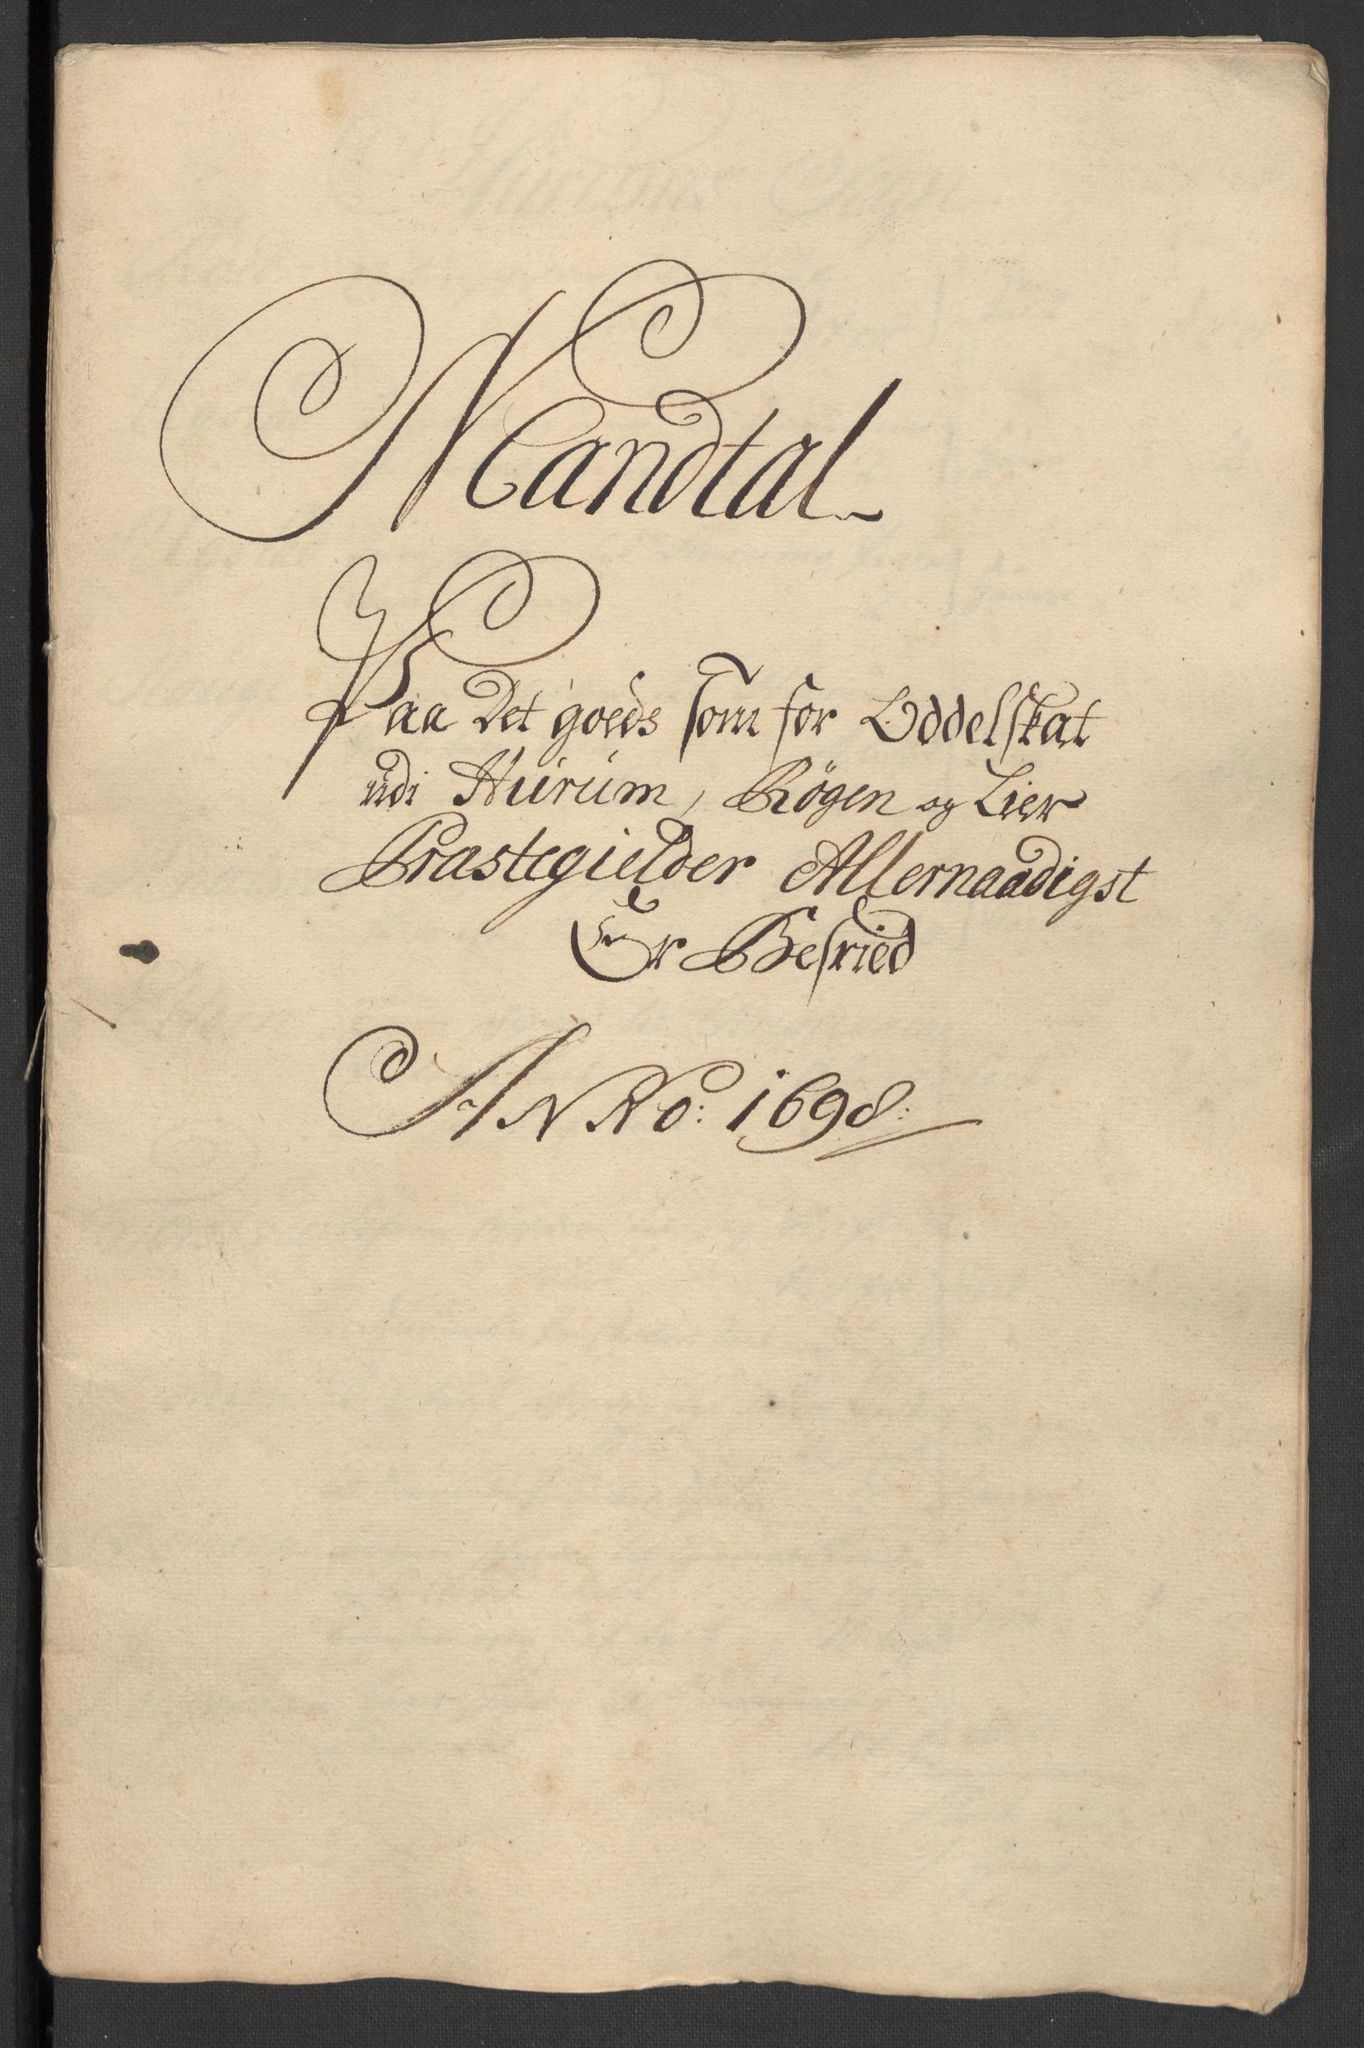 Mandtal
Paa Det goeds som for Oddelskat
udi Hurum, Røgen og Lier
Præstegielder Allernaadigst
Er Befried
ANNO: 1698: